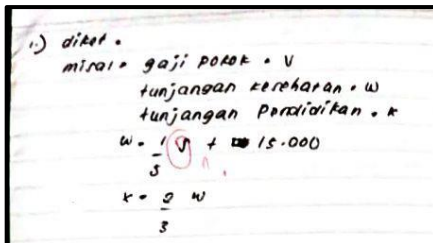 1.) diket.
misal. gaji pokok. V
tunjangan kesehatan. w
tunjangan Pendidikan. x
w. 1/5 V + 15.000
x. 2/3 w